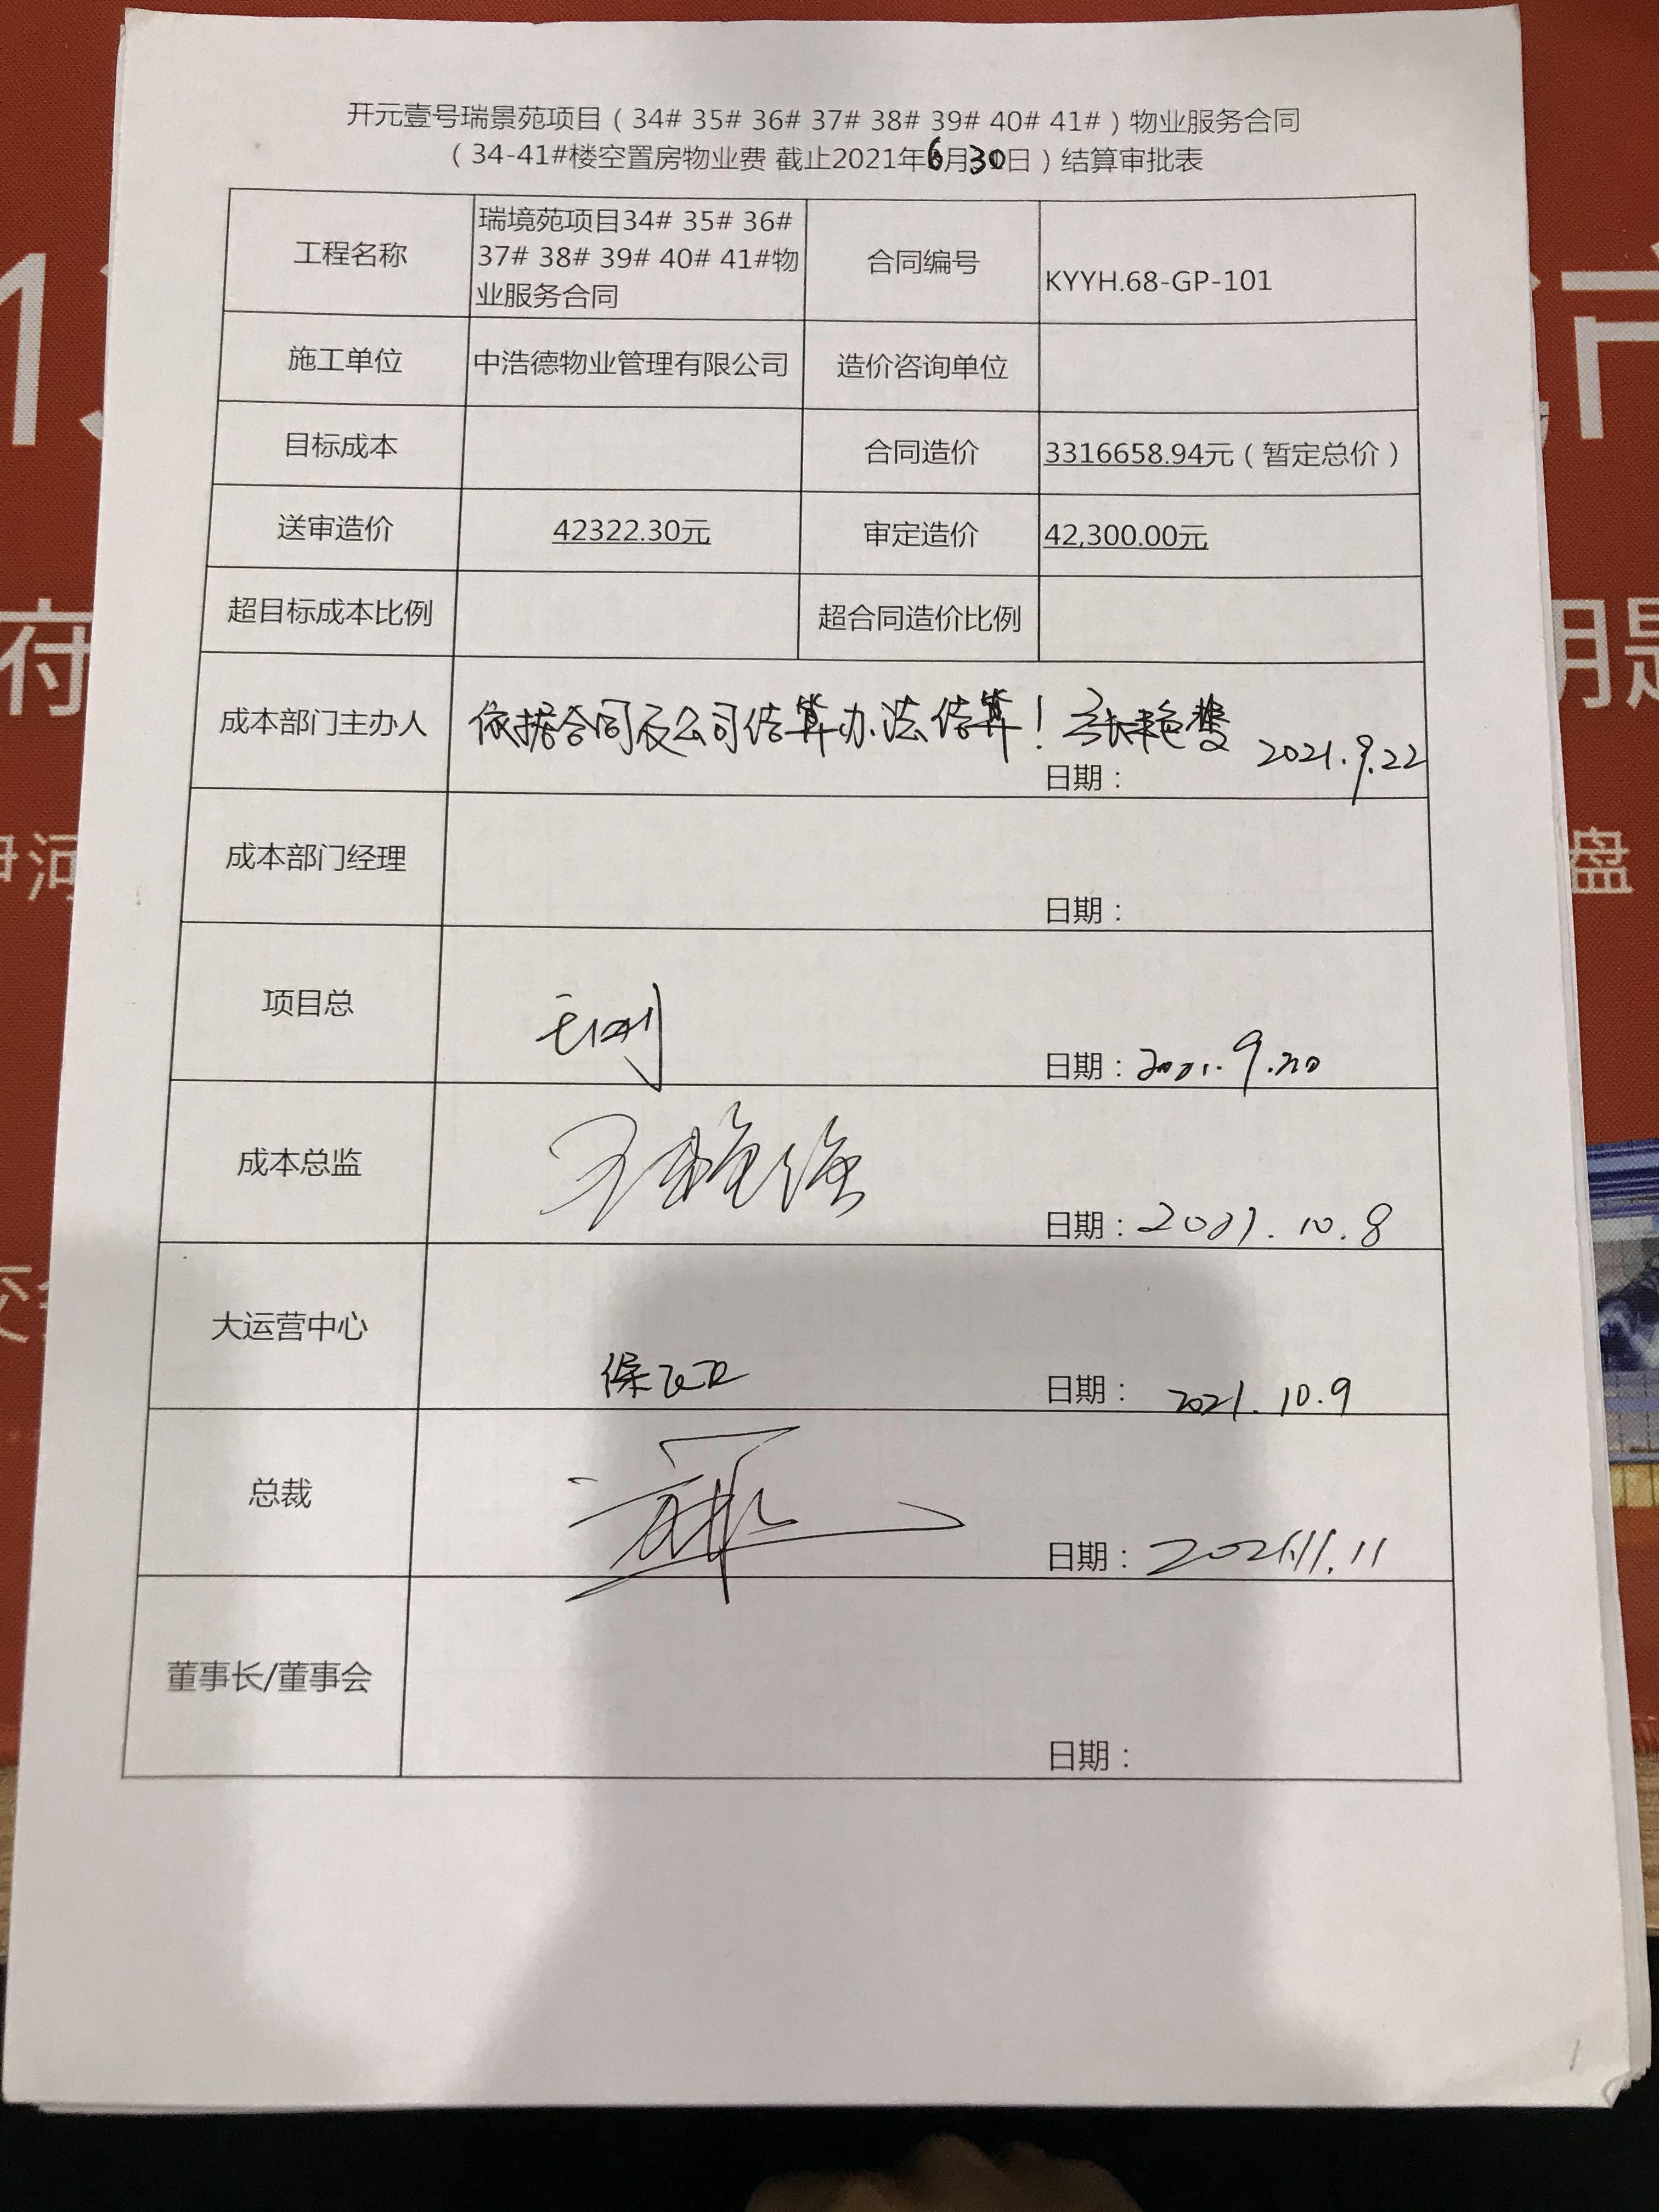 开元壹号瑞景苑项目（34# 35# 36# 37# 38# 39# 40# 41#）物业服务合同
（34-41#楼空置房物业费 截止2021年6月30日）结算审批表
工程名称
瑞境苑项目34# 35# 36#
37# 38# 39# 40# 41#物
业服务合同
合同编号
KYYH.68-GP-101
施工单位
中浩德物业管理有限公司
造价咨询单位
目标成本
合同造价
3316658.94元（暂定总价）
送审造价
42322.30元
审定造价
42,300.00元
超目标成本比例
超合同造价比例
成本部门主办人
依据合同及公司结算办法结算！
日期： 2021.9.22
成本部门经理
日期：
项目总
日期：2021.9.20
成本总监
日期：2021.10.8
大运营中心
日期： 2021.10.9
总裁
日期：2021.11.11
董事长/董事会
日期：
府
伊河
盘
1